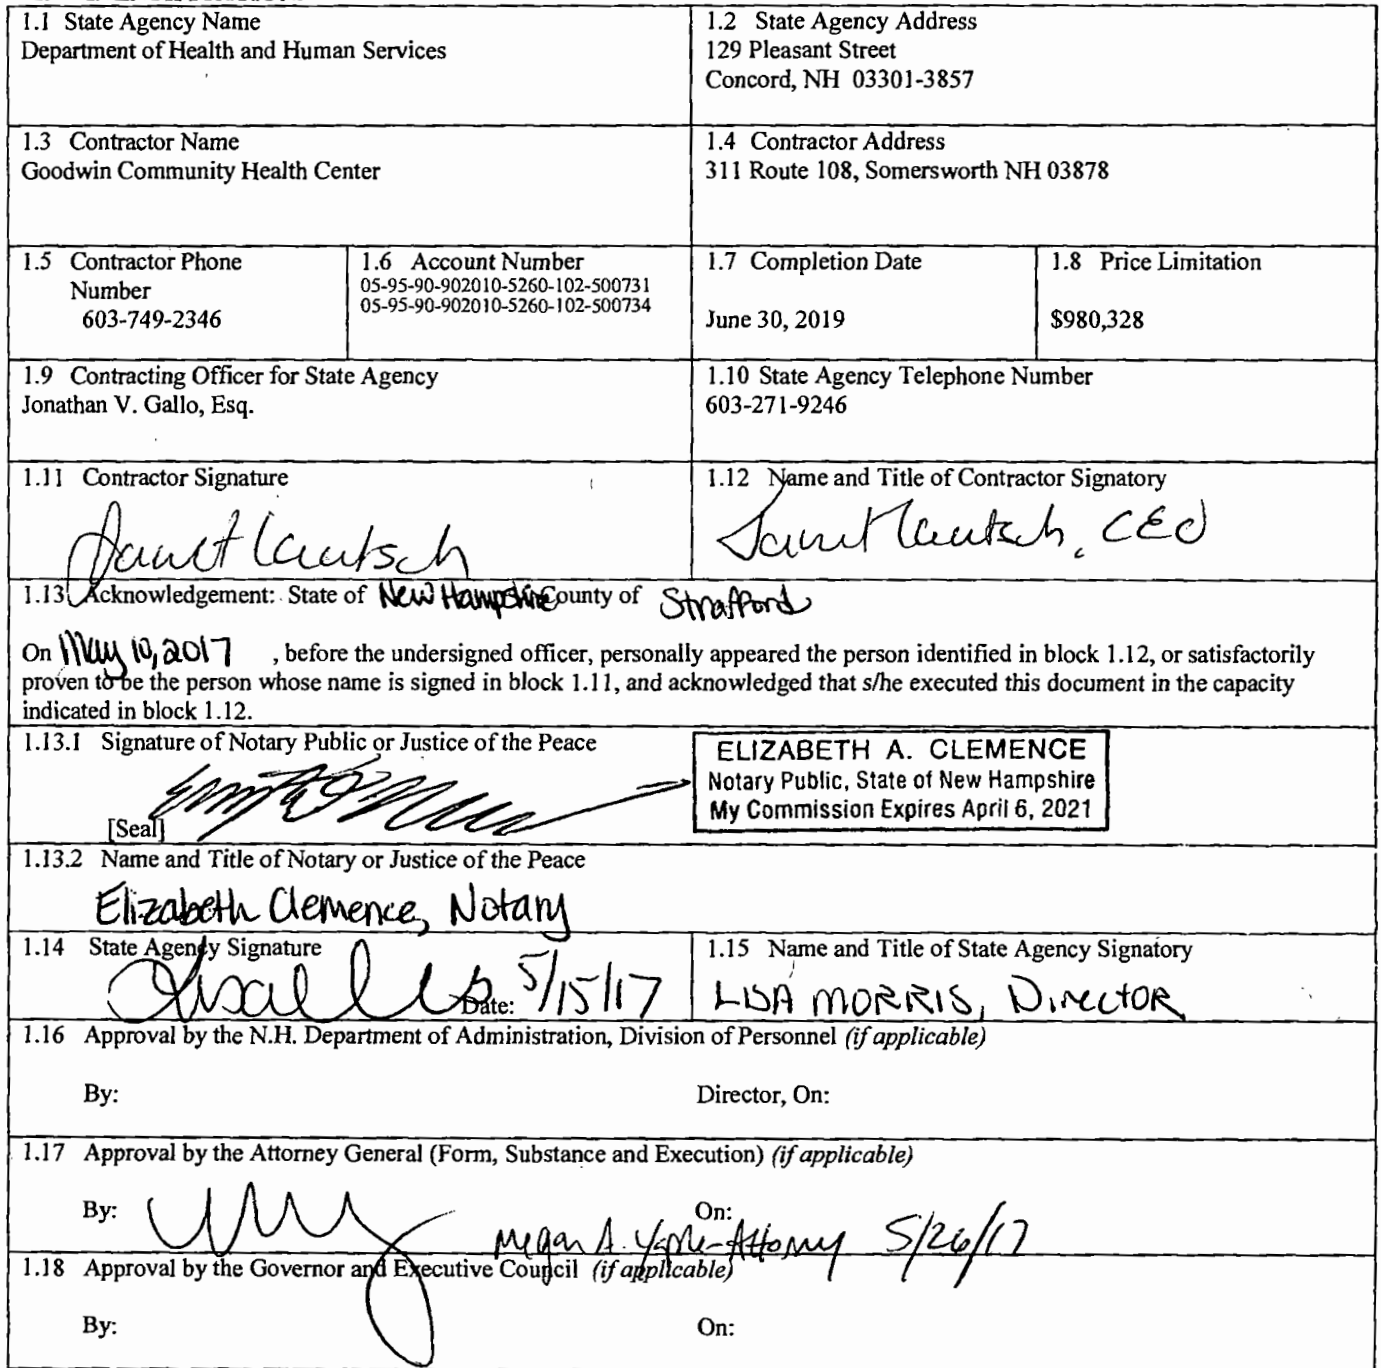 1.1 State Agency Name
Department of Health and Human Services
1.2 State Agency Address
129 Pleasant Street
Concord, NH 03301-3857
1.3 Contractor Name
Goodwin Community Health Center
1.4 Contractor Address
311 Route 108, Somersworth NH 03878
1.5 Contractor Phone
Number
603-749-2346
1.6 Account Number
05-95-90-902010-5260-102-500731
05-95-90-902010-5260-102-500734
1.7 Completion Date
June 30, 2019
1.8 Price Limitation
$980,328
1.9 Contracting Officer for State Agency
Jonathan V. Gallo, Esq.
1.10 State Agency Telephone Number
603-271-9246
1.11 Contractor Signature
Janet Laatsch
1.12 Name and Title of Contractor Signatory
Janet Laatsch, CEO
1.13 Acknowledgement: State of New Hampshire County of Strafford
On May 10, 2017 , before the undersigned officer, personally appeared the person identified in block 1.12, or satisfactorily
proven to be the person whose name is signed in block 1.11, and acknowledged that s/he executed this document in the capacity
indicated in block 1.12.
1.13.1 Signature of Notary Public or Justice of the Peace
[Seal]
ELIZABETH A. CLEMENCE
Notary Public, State of New Hampshire
My Commission Expires April 6, 2021
1.13.2 Name and Title of Notary or Justice of the Peace
Elizabeth Clemence, Notary
1.14 State Agency Signature
Date: 5/15/17
1.15 Name and Title of State Agency Signatory
LISA MORRIS, DIRECTOR
1.16 Approval by the N.H. Department of Administration, Division of Personnel (if applicable)
By:
Director, On:
1.17 Approval by the Attorney General (Form, Substance and Execution) (if applicable)
By:
On:
Megan A. Attorney 5/26/17
1.18 Approval by the Governor and Executive Council (if applicable)
By:
On: